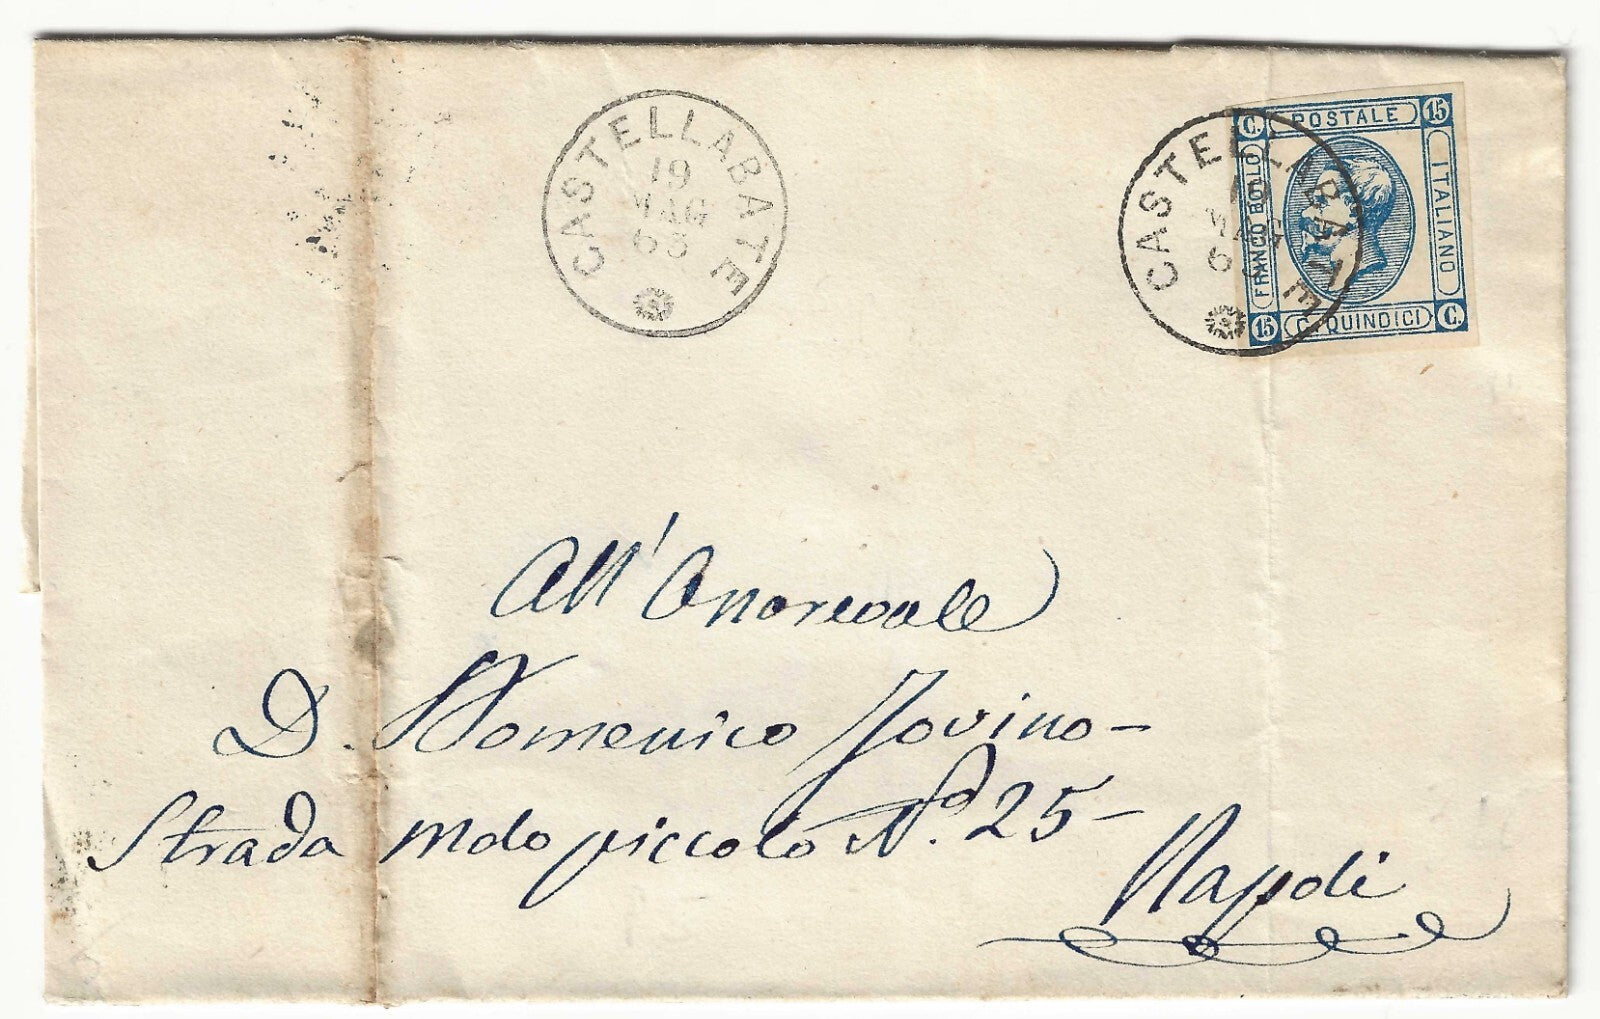 CASTELLABATE
19
MAG
63
CASTELLABATE
19
MAG
6
C. POSTALE 15
FRANCO BOLLO
ITALIANO
15 C. QUINDICI C.
All' Onorevole
D. Domenico Jovino -
Strada molo piccolo N.º 25 -
Napoli